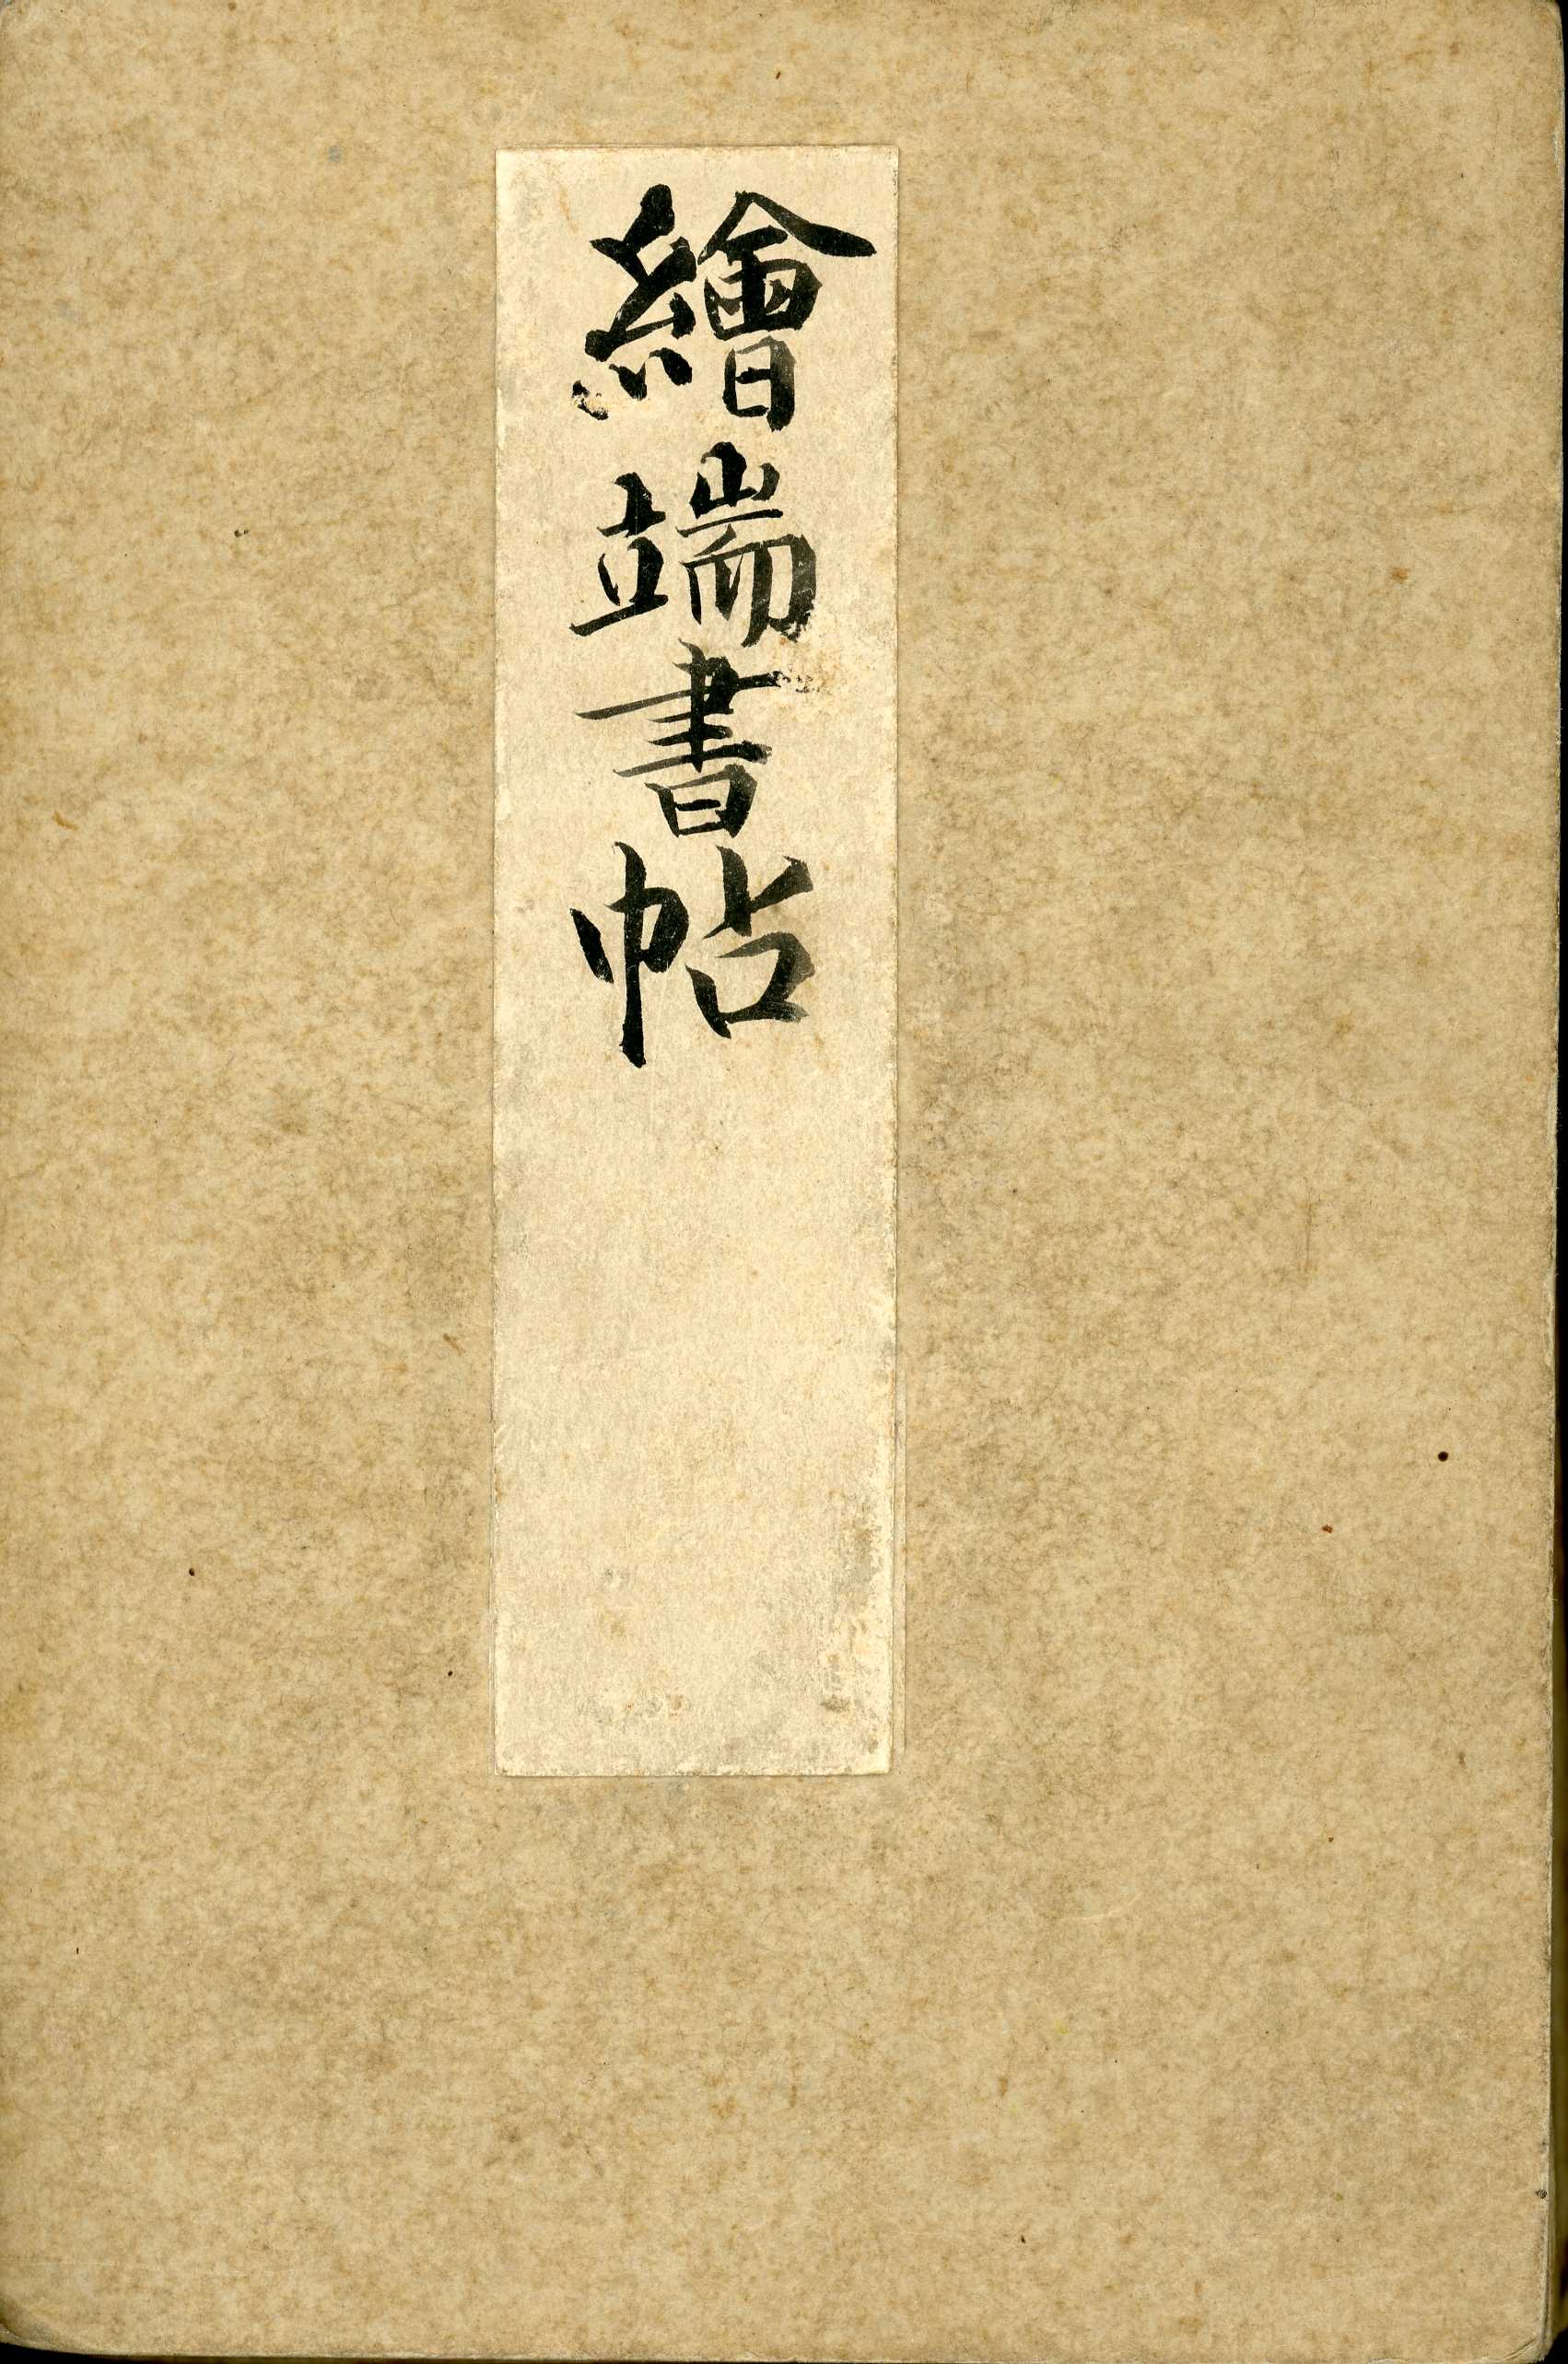 繪端書帖